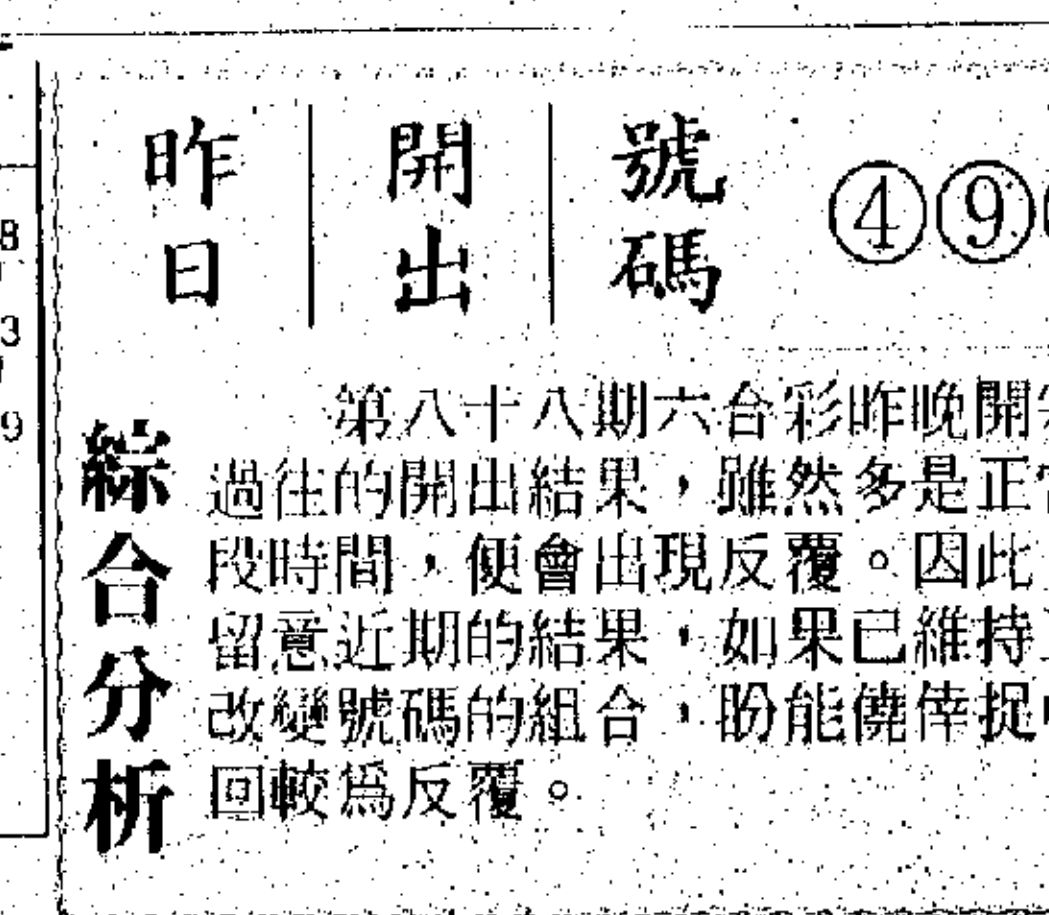 昨日
開出
號碼
④⑨
綜合分析
第八十八期六合彩昨晚開
過往的開出結果,雖然多是正
段時間,便會出現反覆。因此
留意近期的結果,如果已維持
改變號碼的組合,盼能僥倖捉
回較爲反覆。
8
3
9